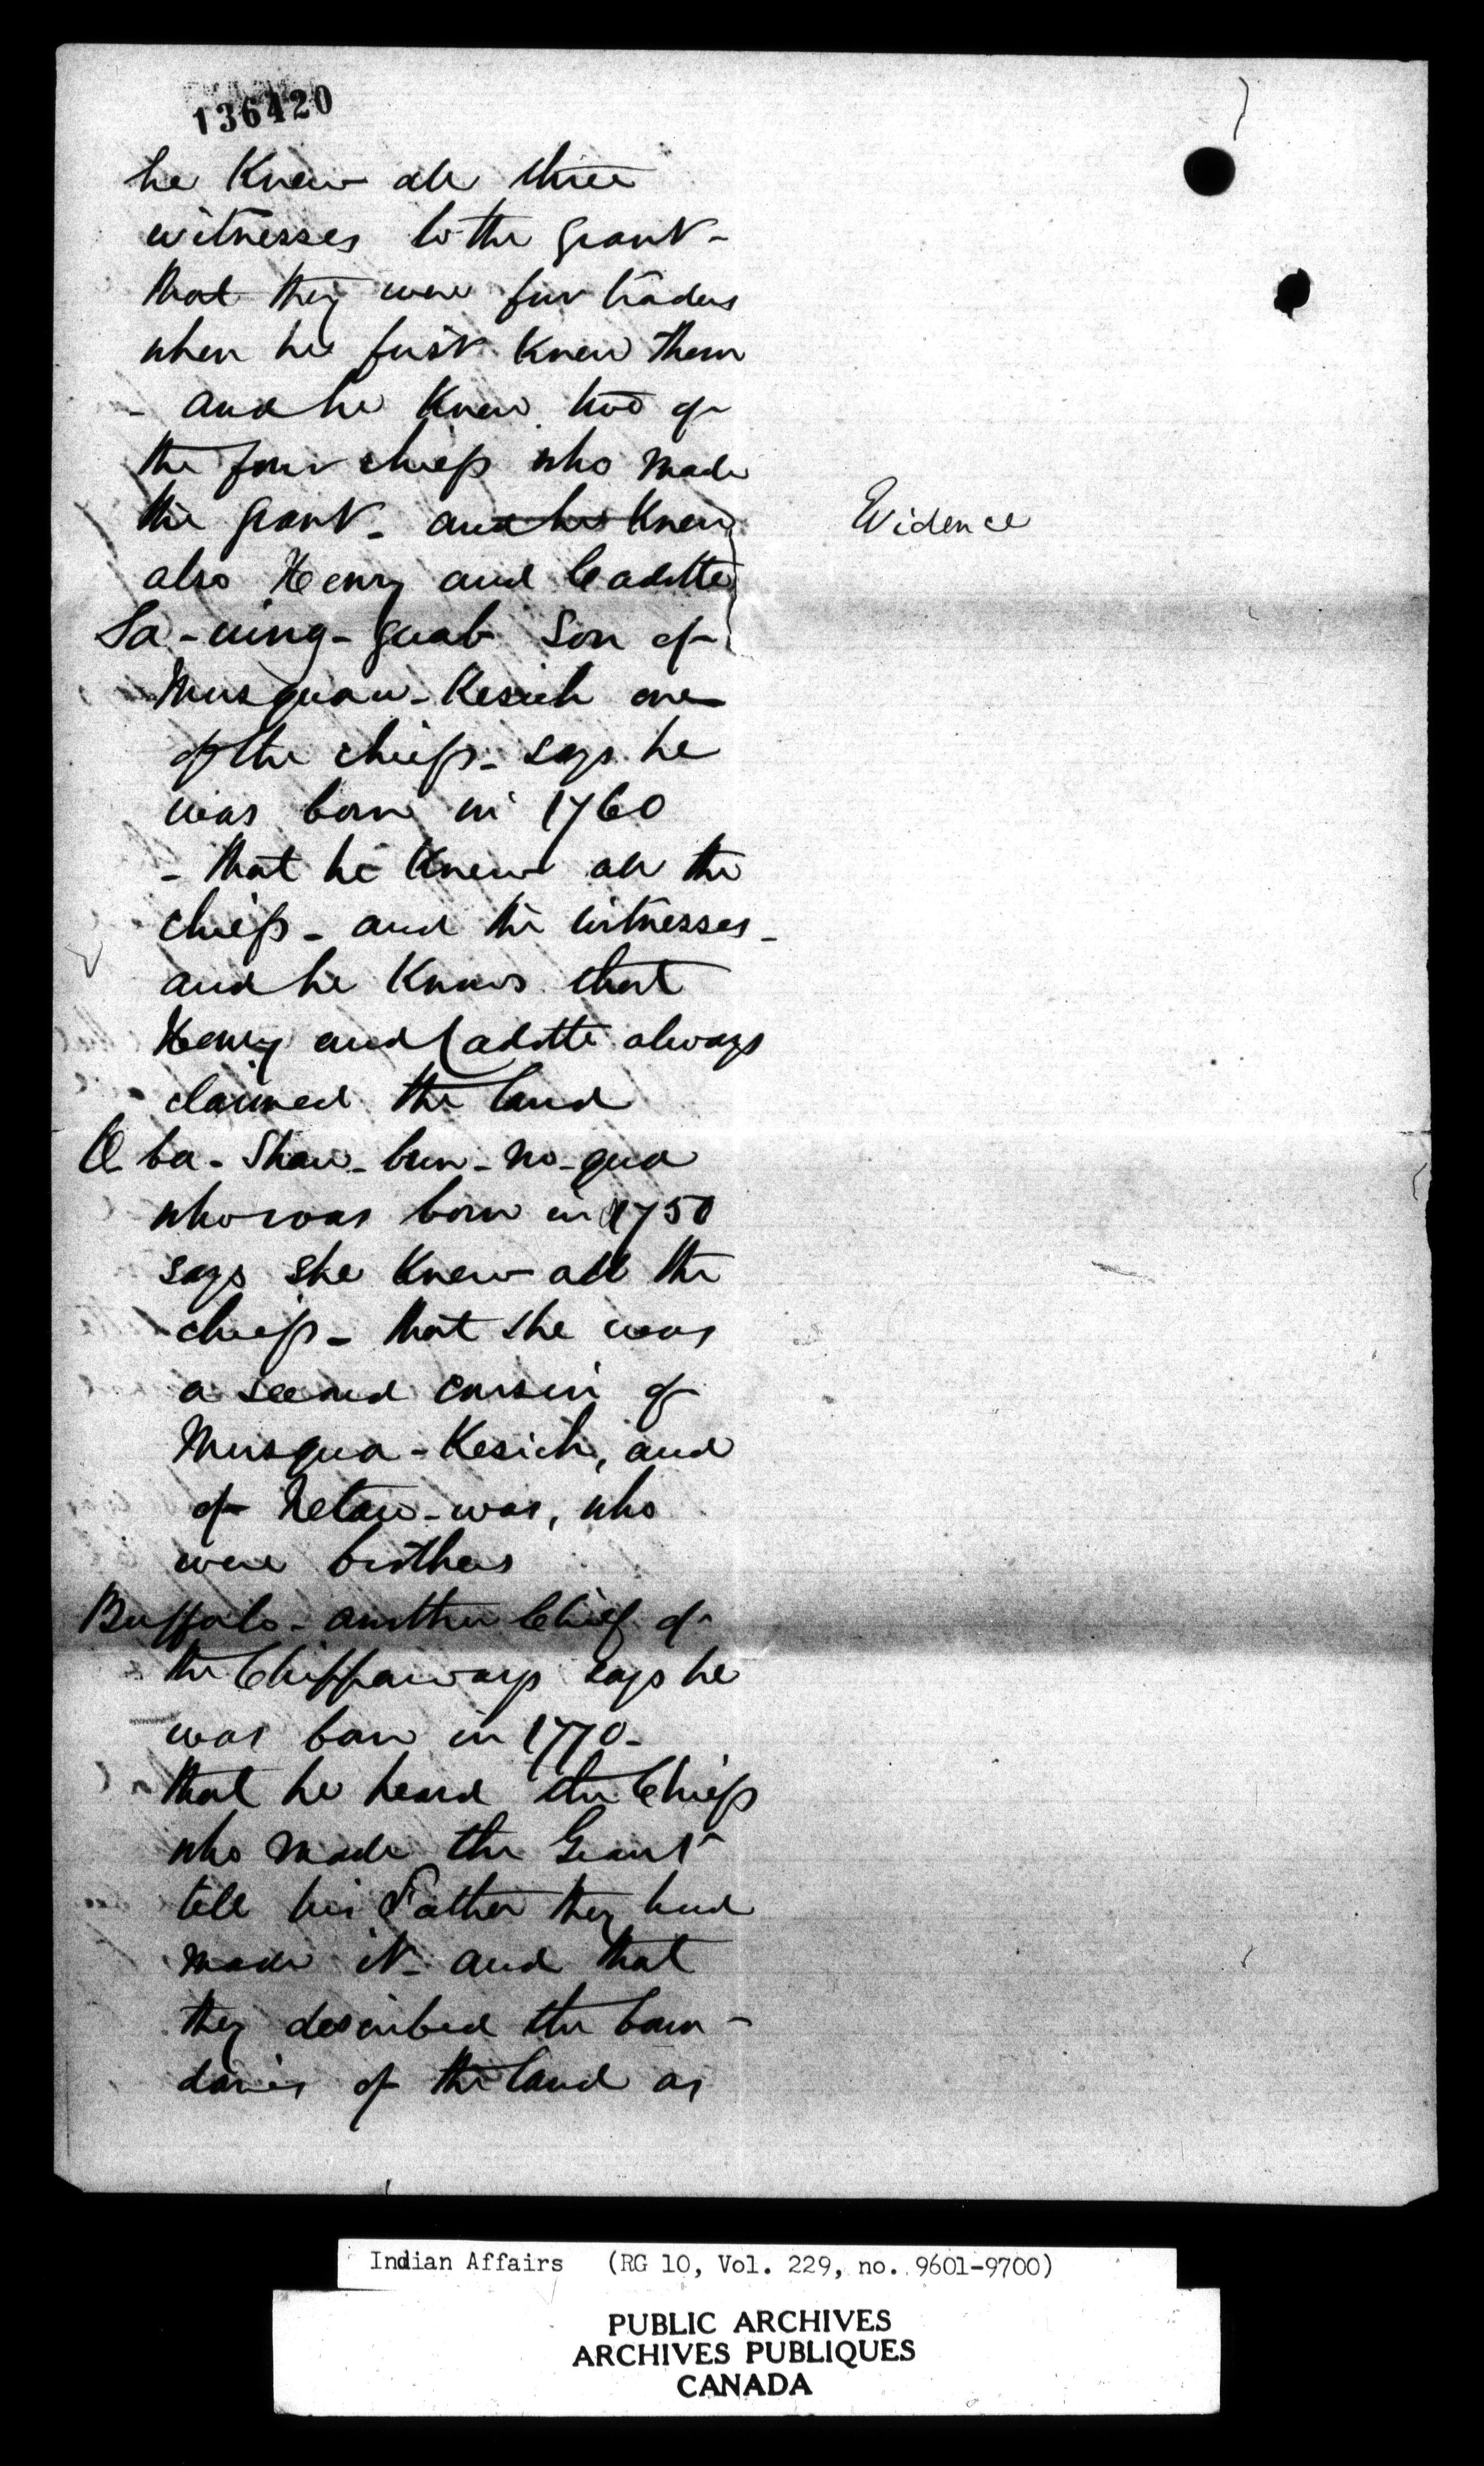 136420
he Knew all three
witnesses to the grant -
that they were fur traders
when he first Knew them
- and he Knew two of
the four chiefs who made
the grant - and he Knew
also Henry and Cadotte
Evidence
Sa-uing-guab Son of
Musquaw-Kesich one
of the chiefs - says he
was born in 1760
- that he Knew all the
chiefs - and the witnesses -
and he Knows that
Henry and Cadotte always
claimed the land
O ba-Shaw-bun-no-qua
who was born in 1750
says she Knew all the
chiefs - that she was
a second cousin of
Musqua-Kesich, and
of Netaw-was, who
were brothers
Buffalo - another Chief of
the Chippaways says he
was born in 1770 -
that he heard the Chiefs
who made the Grant
tell his Father they had
made it - and that
they described the boun-
daries of the land as
Indian Affairs (RG 10, Vol. 229, no. 9601-9700)
PUBLIC ARCHIVES
ARCHIVES PUBLIQUES
CANADA